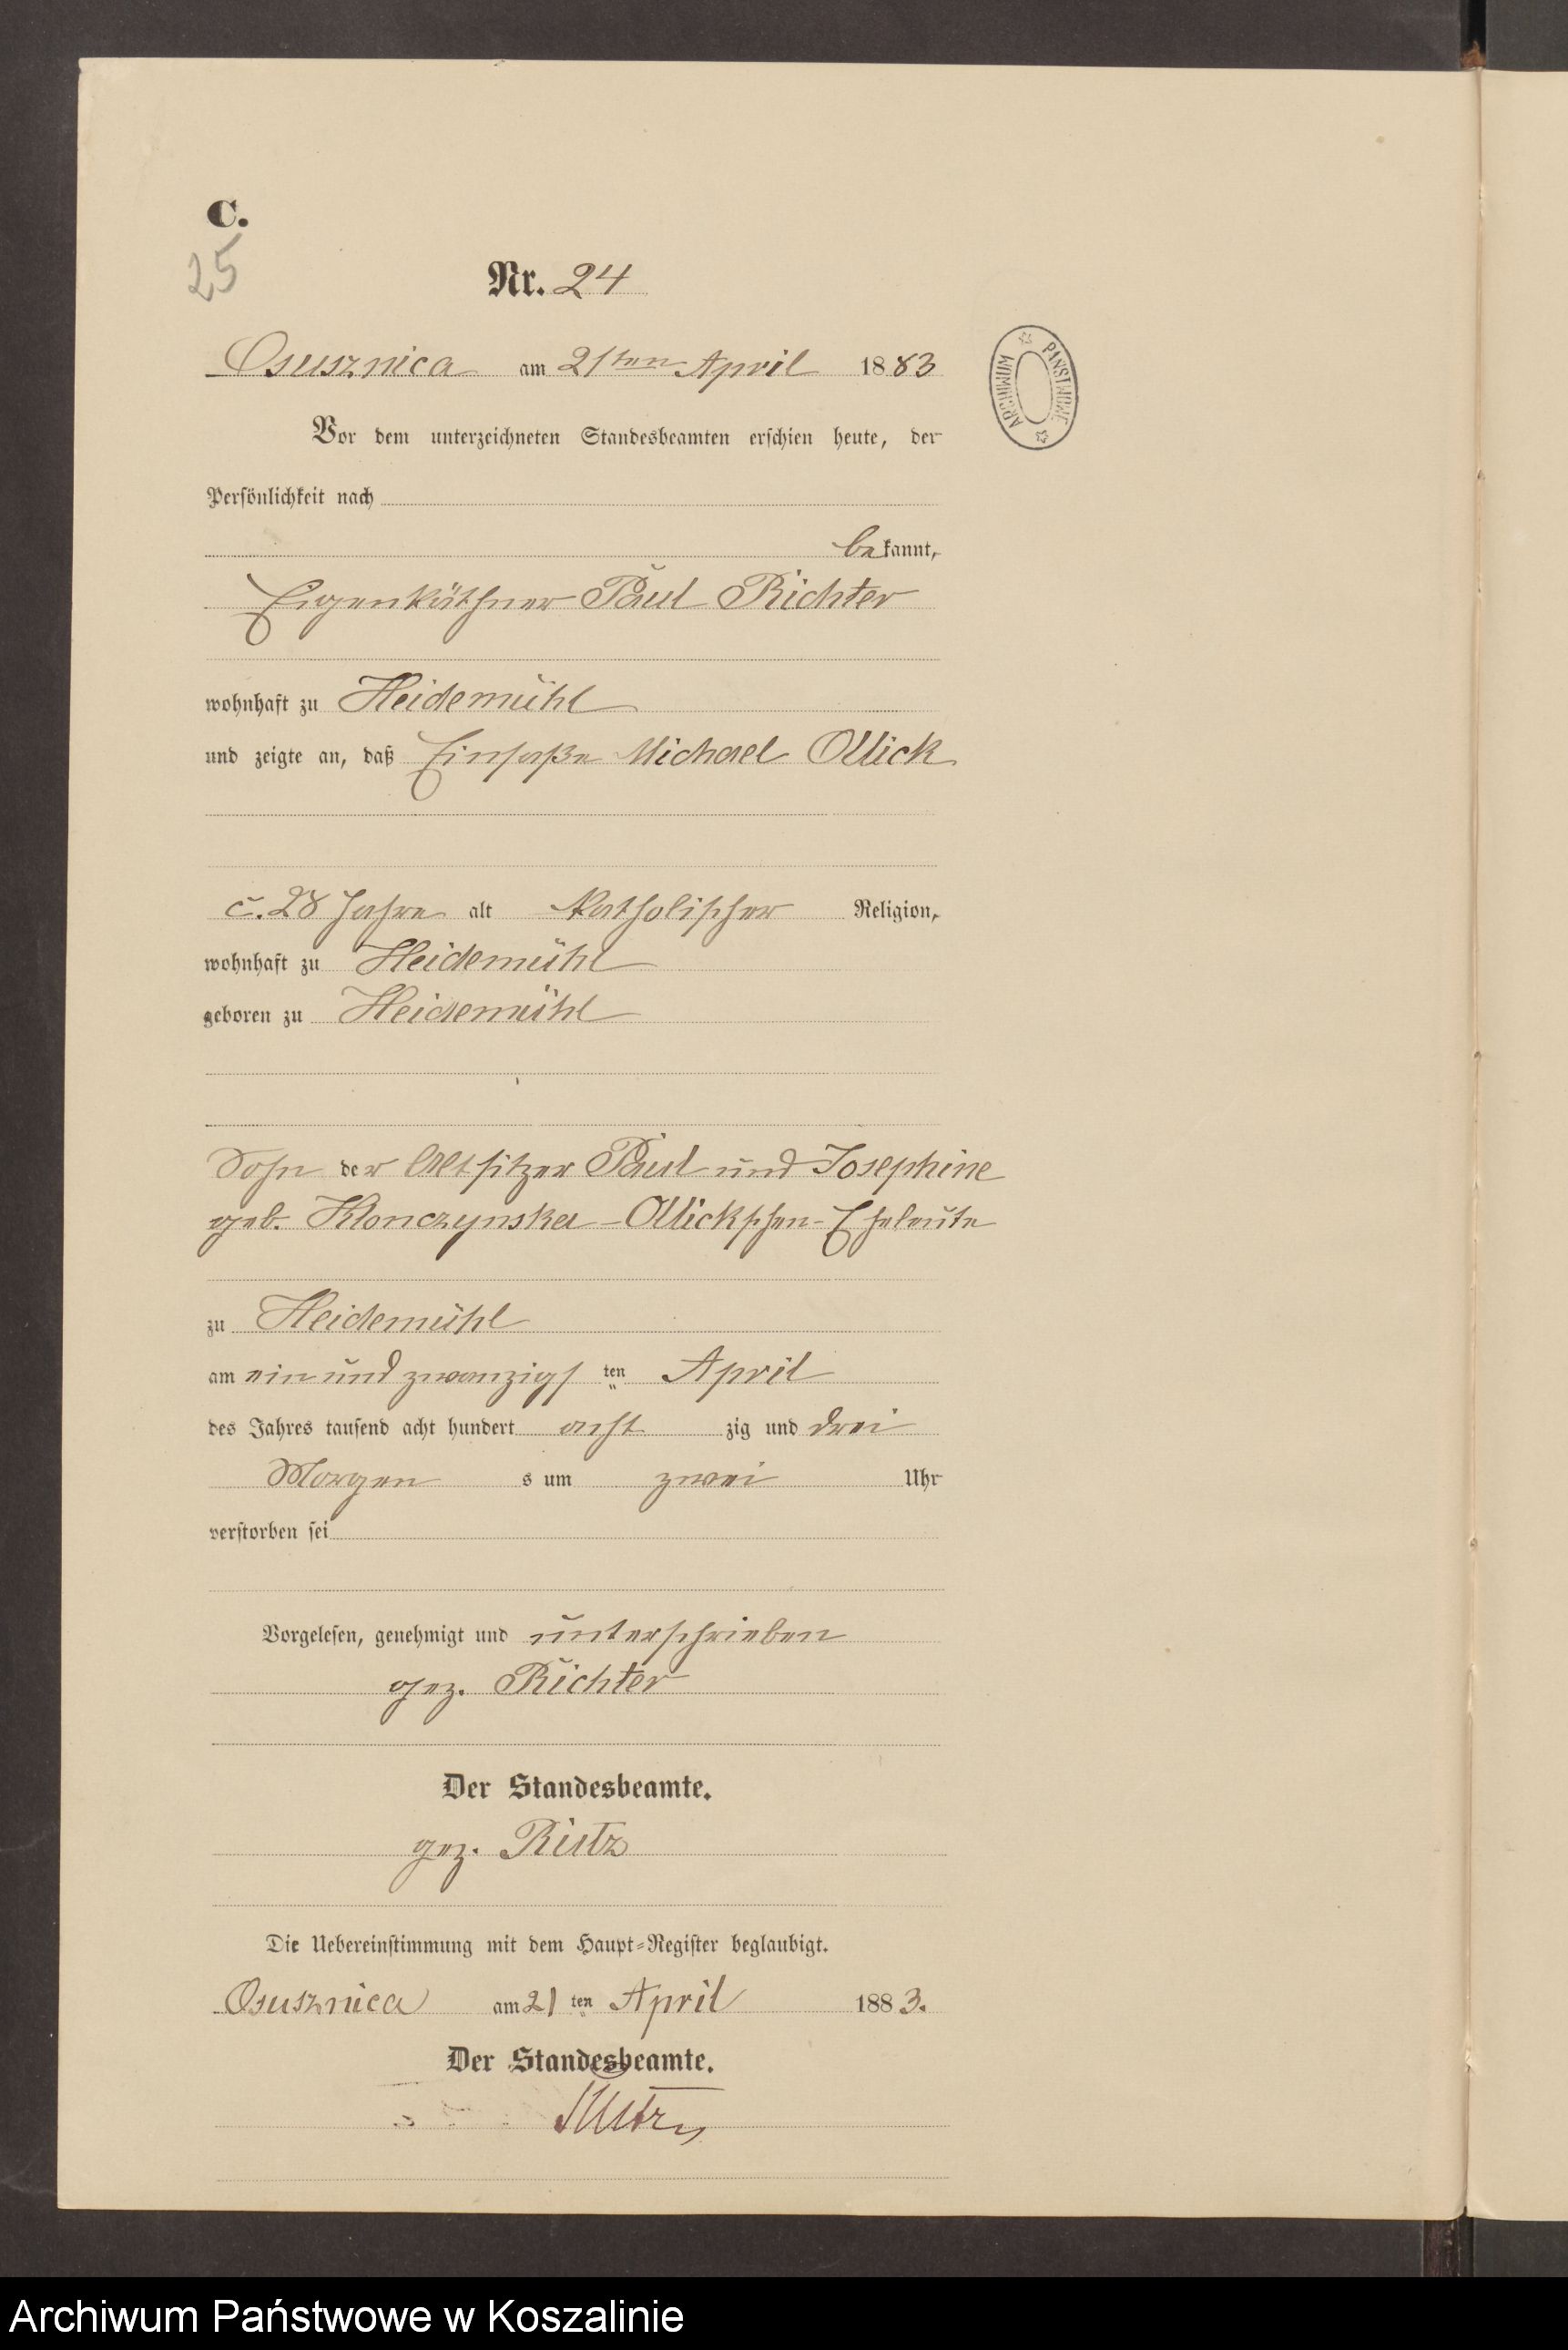 C.
25
Nr. 24
Osusznica am 21ten April 1883
Vor dem unterzeichneten Standesbeamten erschien heute, der
Persönlichkeit nach
bekannt,
Eigenkäthner Paul Richter
wohnhaft zu Heidemühl
und zeigte an, daß Einsaße Michael Ollick
c. 28 Jahre alt katholischer Religion,
wohnhaft zu Heidemühl
geboren zu Heidemühl
Sohn der Altsitzer Paul und Josephine
geb. Klonczynska-Ollickschen-Eheleute
zu Heidemühl
am ein und zwanzigsten April
des Jahres tausend acht hundert acht zig und drei
Morgen s um zwei Uhr
verstorben sei
Vorgelesen, genehmigt und unterschrieben
gez. Richter
Der Standesbeamte.
gez. Rutz
Die Uebereinstimmung mit dem Haupt-Register beglaubigt.
Osusznica am 21 ten April 1883.
Der Standesbeamte.
Rutz
ARCHIWUM PAŃSTWOWE
Archiwum Państwowe w Koszalinie